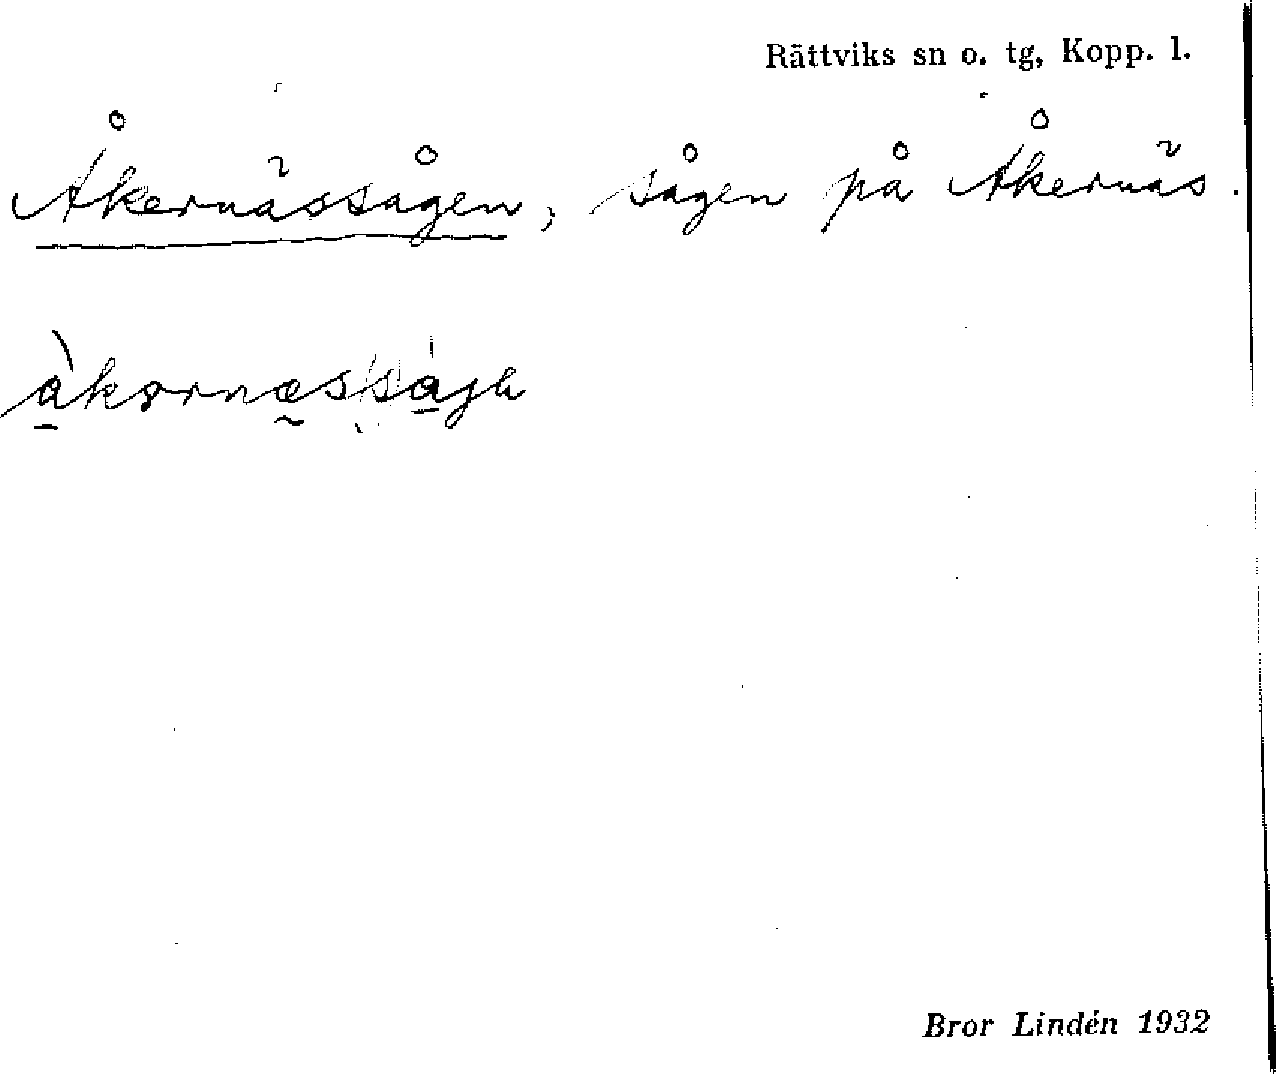 Rättviks sn o. tg, Kopp. l.
Åkernässågen, sågen på Åkernäs.
Bror Lindén 1932